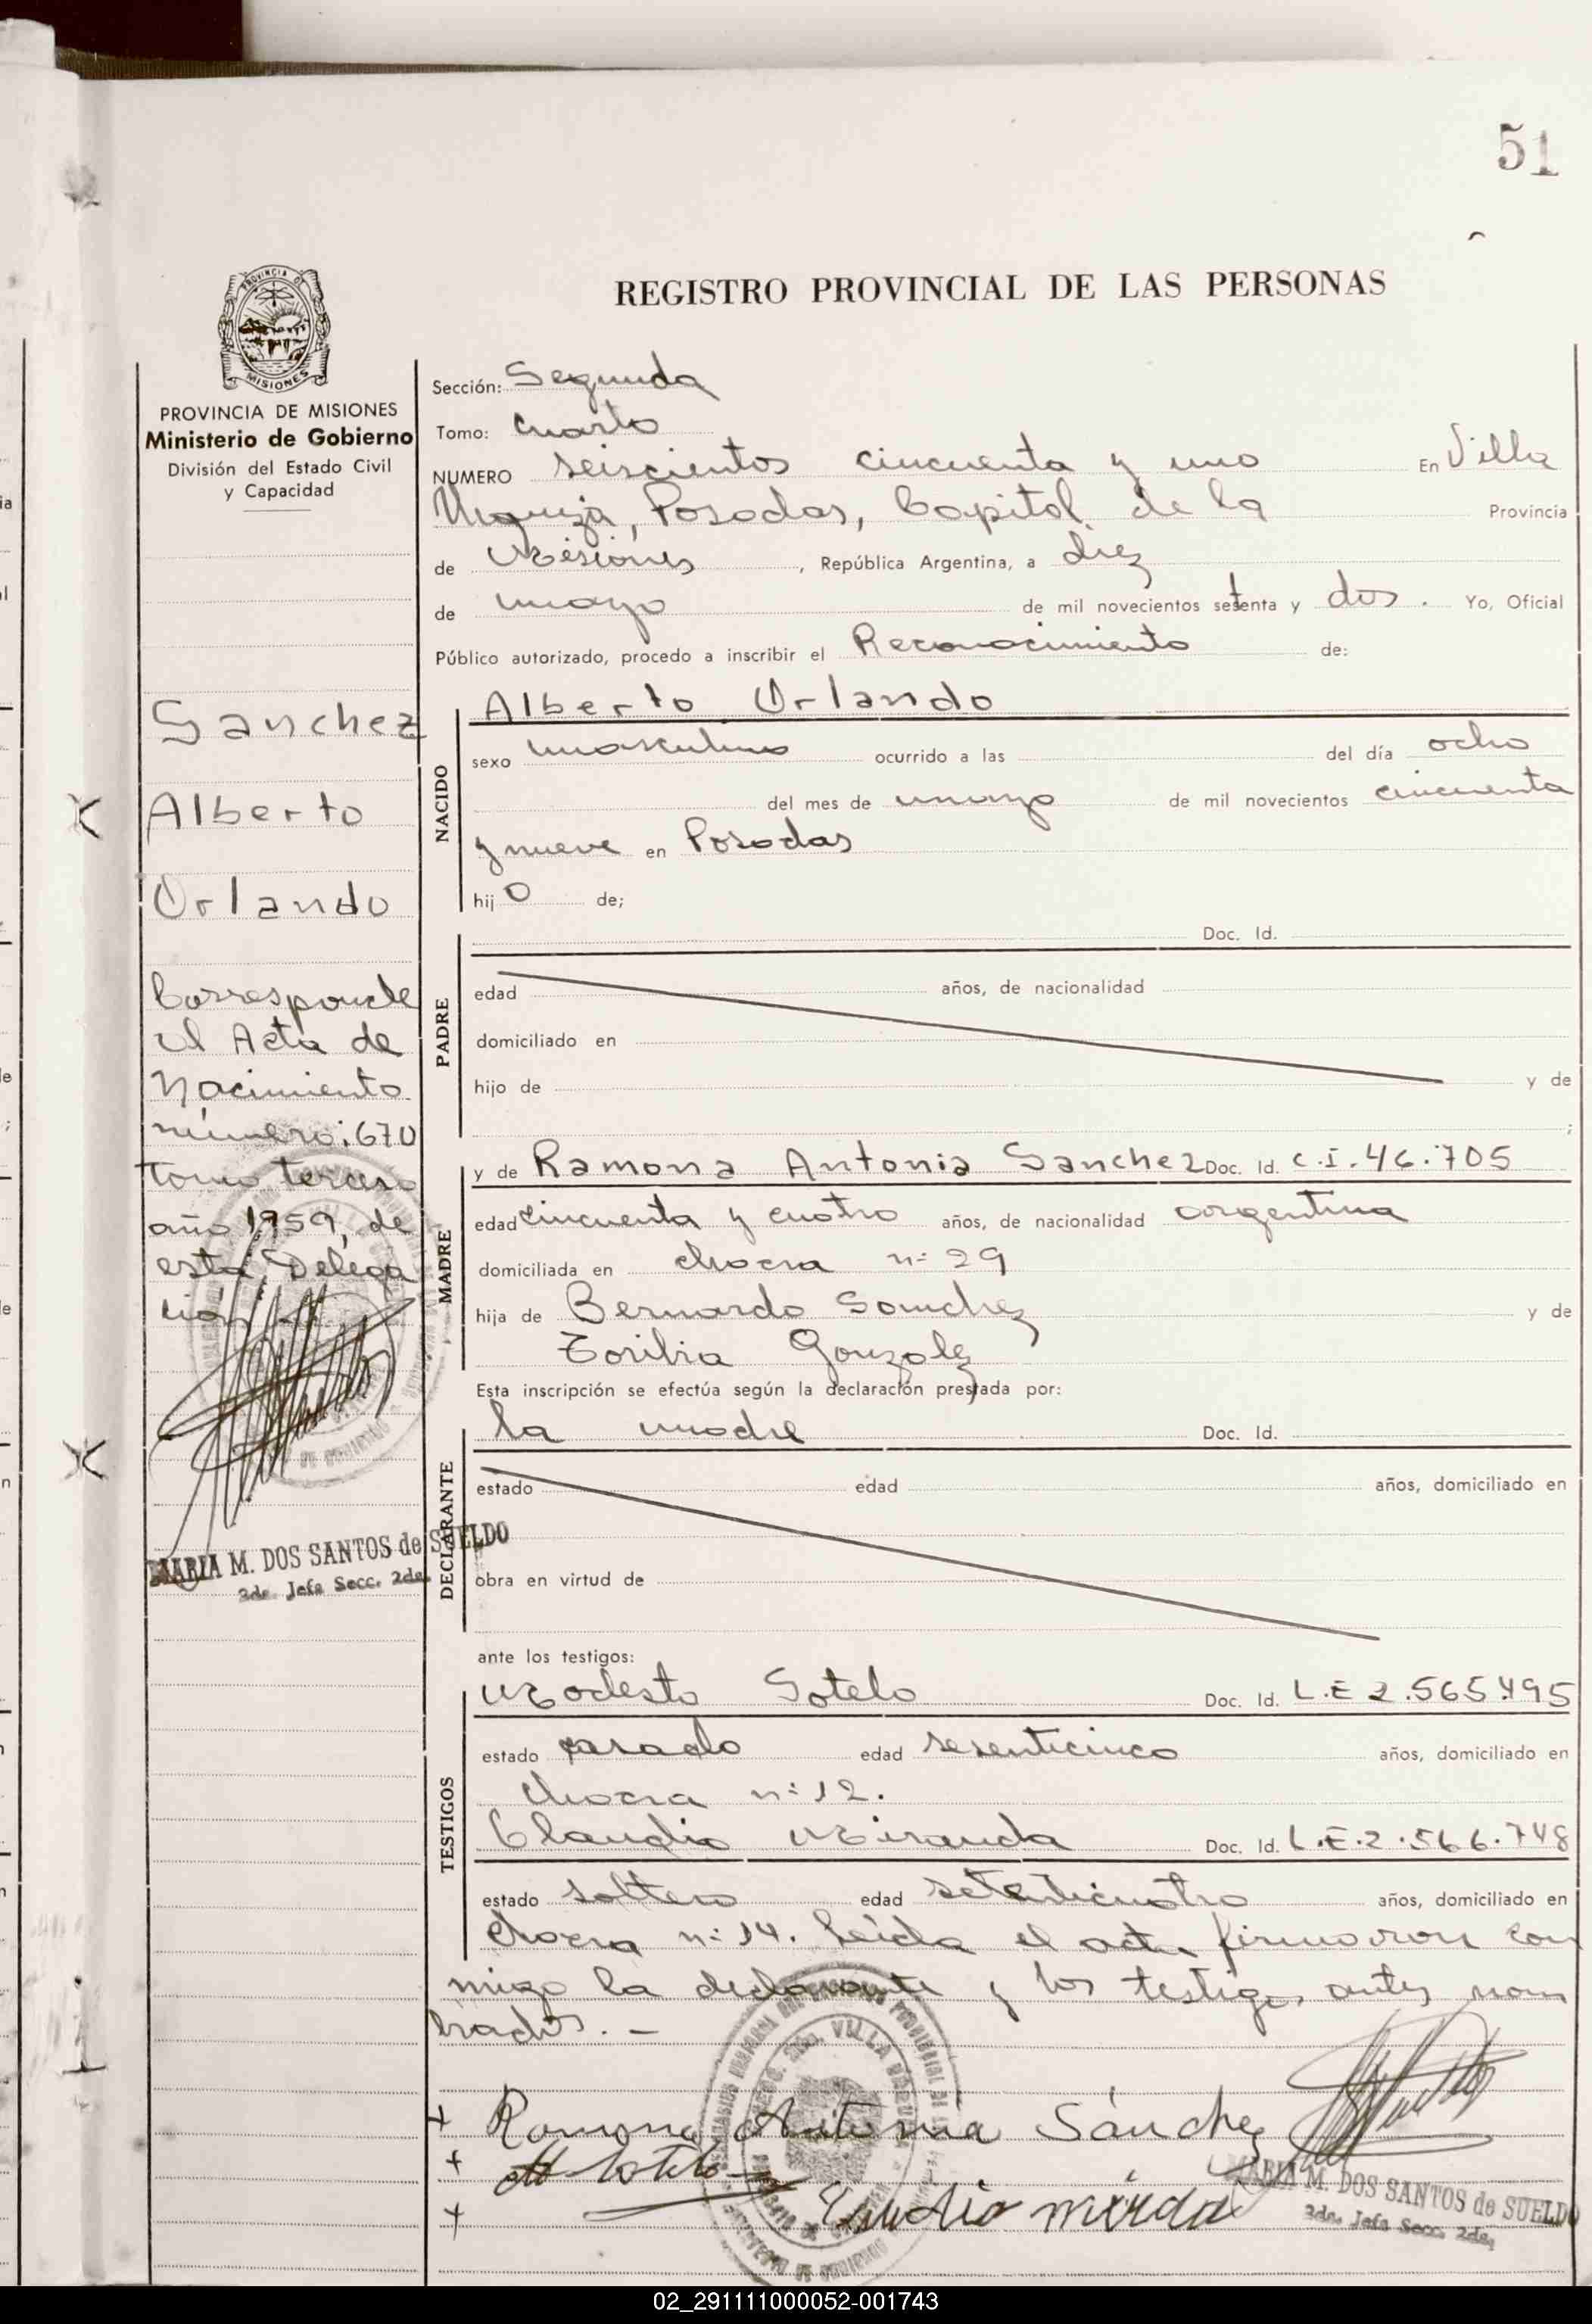 51
REGISTRO PROVINCIAL DE LAS PERSONAS
PROVINCIA DE MISIONES
PROVINCIA DE MISIONES
Ministerio de Gobierno
División del Estado Civil
y Capacidad
Sanchez
Alberto
Orlando
Corresponde
al Acta de
Nacimiento
número: 670
tomo tercero
año 1959, de
esta Delega
ción
MARIA M. DOS SANTOS de SUELDO
2da. Jefa Secc. 2da.
Sección: Segunda
Tomo: Cuarto
NUMERO seiscientos cincuenta y uno En Villa
Urquiza, Posadas, Capital de la Provincia
de Misiones, República Argentina, a diez
de mayo de mil novecientos setenta y dos. Yo, Oficial
Público autorizado, procedo a inscribir el Reconocimiento de:
NACIDO
Alberto Orlando
sexo masculino ocurrido a las del día ocho
del mes de mayo de mil novecientos cincuenta
y nueve en Posadas
hijo de;
PADRE
Doc. Id.
edad años, de nacionalidad
domiciliado en
hijo de y de
;
MADRE
y de Ramona Antonia Sanchez Doc. Id. C.I. 46.705
edad cincuenta y cuatro años, de nacionalidad argentina
domiciliada en chacra n: 29
hija de Bernardo Sanchez y de
Toribia Gonzalez
Esta inscripción se efectúa según la declaración prestada por:
DECLARANTE
la madre Doc. Id.
estado edad años, domiciliado en
obra en virtud de
ante los testigos:
TESTIGOS
Modesto Sotelo Doc. Id. L.E 2.565.495
estado casado edad sesenticinco años, domiciliado en
chacra n: 12.
Claudio Miranda Doc. Id. L.E.2.566.748
estado soltero edad setenticuatro años, domiciliado en
chacra n: 14. Leída el acta firmaron con
migo la declarante y los testigos antes nom
brados. -
Ramona Antonia Sánchez
M Sotelo
MARIA M. DOS SANTOS de SUELDO
2da. Jefa Secc. 2da.
02_291111000052-001743